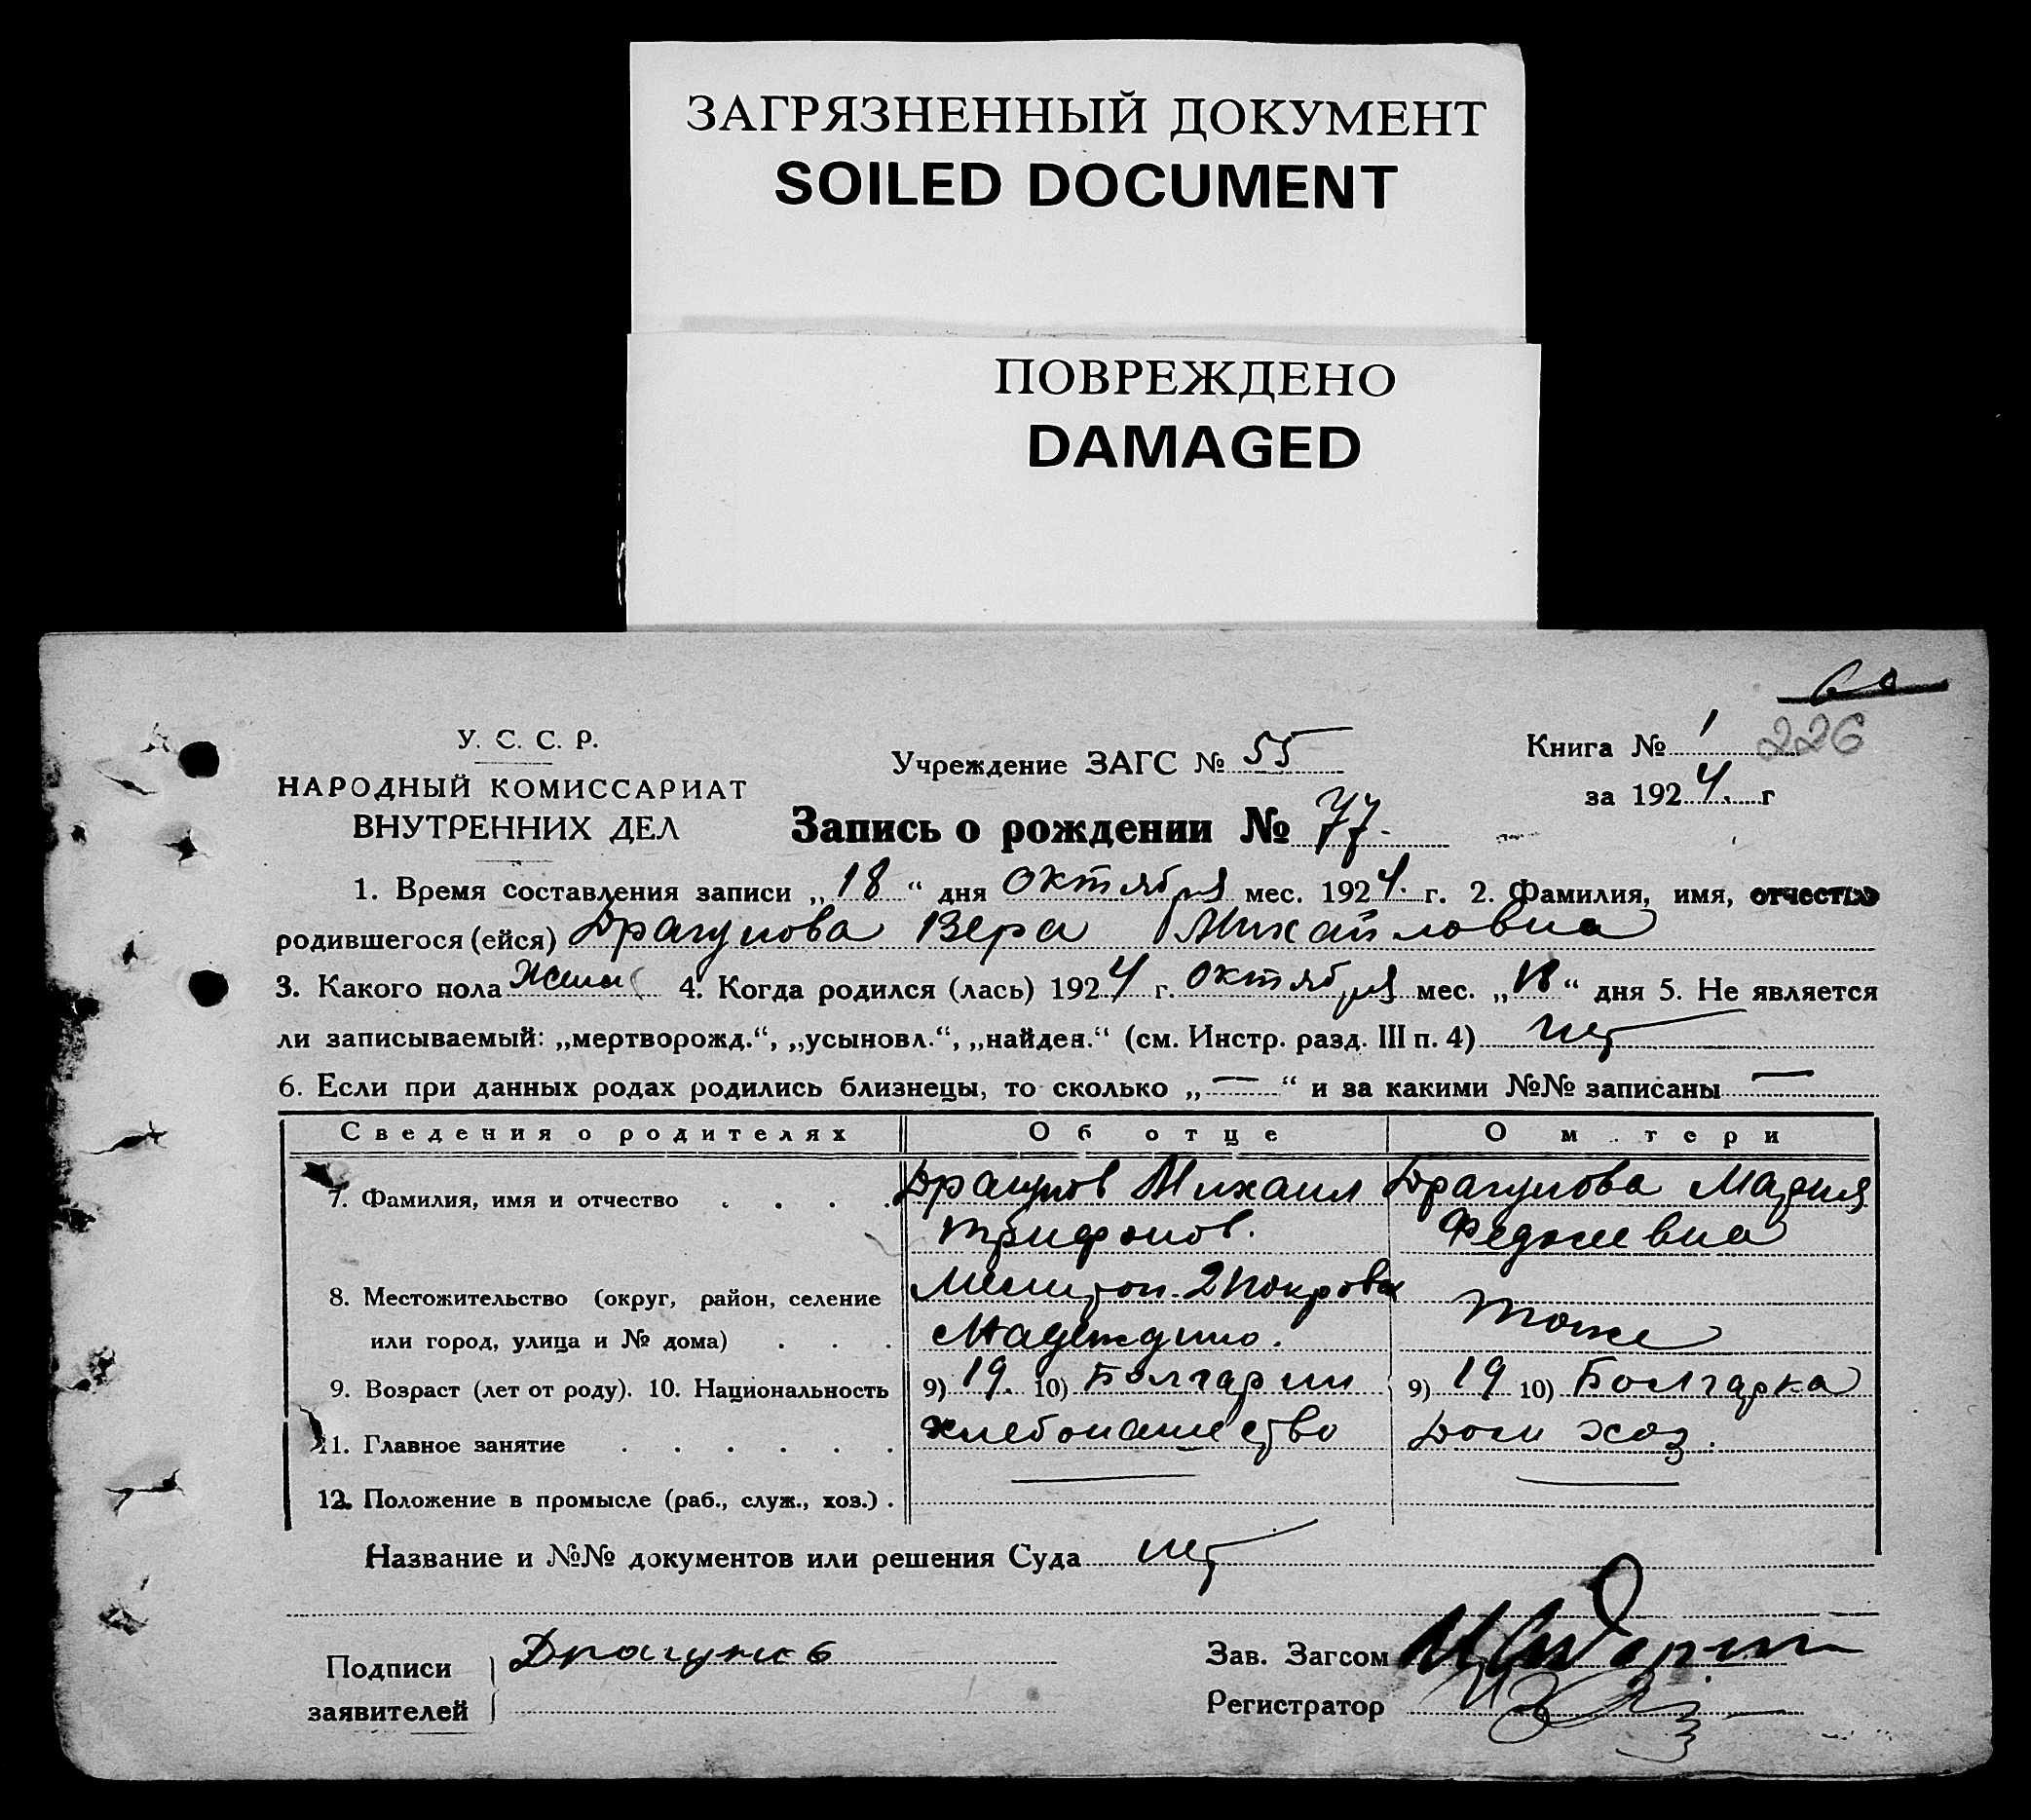 ЗАГРЯЗНЕННЫЙ ДОКУМЕНТ
SOILED DOCUMENT
ПОВРЕЖДЕНО
DAMAGED
60
226
У. С. С. Р.
НАРОДНЫЙ КОМИССАРИАТ
ВНУТРЕННИХ ДЕЛ
Учреждение ЗАГС № 55
Книга № 1
за 1924. г
Запись о рождении № 77.
1. Время составления записи „18“ дня октября мес. 1924. г. 2. Фамилия, имя, отчество
родившегося (ейся) Драгунова Вера Михайловна
3. Какого пола жен 4. Когда родился (лась) 1924 г. октября мес. „18“ дня 5. Не является
ли записываемый: „мертворожд.“, „усыновл.“, „найден.“ (см. Инстр. разд. III п. 4) нет
6. Если при данных родах родились близнецы, то сколько „—“ и за какими №№ записаны —
Сведения о родителях Об отце О м тери
7. Фамилия, имя и отчество . . . . Драгунов Михаил Драгунова Мария
Трифонов.
8. Местожительство (округ, район, селение Мелитоп. 2 Покровск
или город, улица и № дома) . . . Надеждино. тоже
9. Возраст (лет от роду). 10. Национальность 9) 19. 10) Болгарин 9) 19 10) Болгарка
11. Главное занятие . . . . . . хлебопашество Дом хоз.
12. Положение в промысле (раб., служ., хоз.) . — —
Название и №№ документов или решения Суда нет
Подписи Драгунов
заявителей
Зав. Загсом
Регистратор